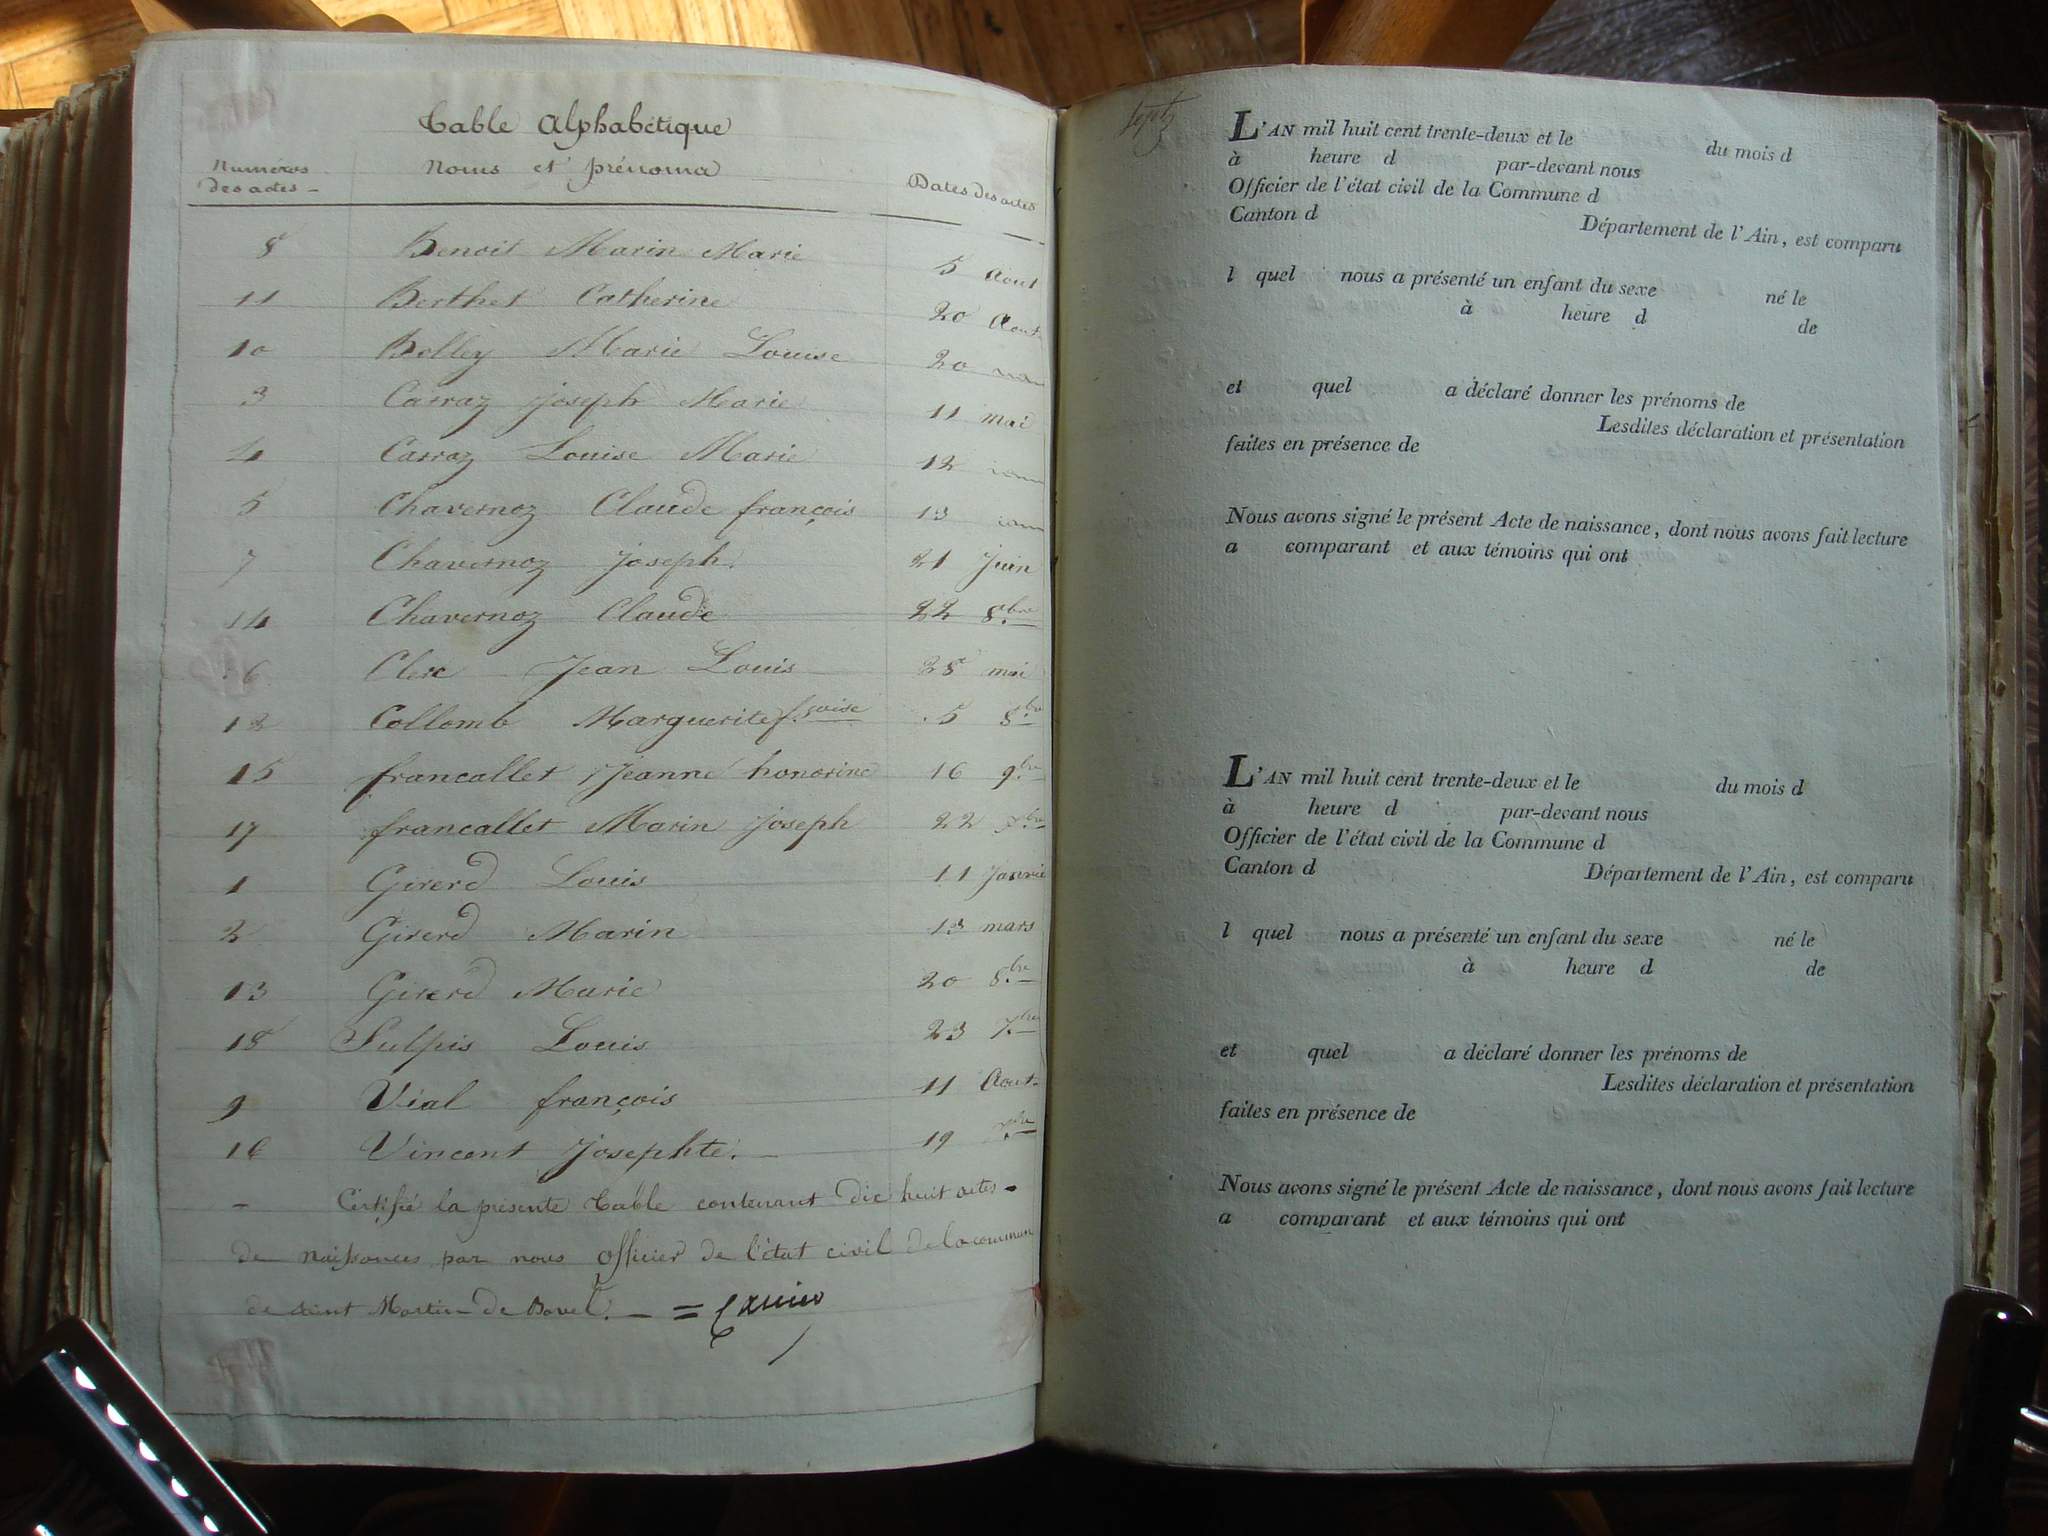 Table Alphabétique
Numéros des actes - Noms et prénoms Dates des actes
8 Benoit Marin Marie 5 Aout
11 Berthet Catherine 20 Aout
10 Bolley Marie Louise 20
3 Carraz Joseph Marie 11 mai
4 Carraz Louise Marie 12
5 Chavernoz Claude françois 13
7 Chavernoz Joseph 21 Juin
14 Chavernoz Claude 22 8.bre
6 Clerc Jean Louis 28 mai
12 Collomb Marguerite f.soise 5 8.bre
15 francallet Jeanne honorine 16 9.bre
17 francallet Marin Joseph 22
1 Girerd Louis 11 Janvie
2 Girerd Marin 13 mars
13 Girerd Marie 20 8.bre
18 Sulpis Louis 23
9 Vial françois 11 Aout
16 Vincent Josephte. 19
- Certifié la présente table contenant dix huit actes -
de naissances par nous officier de l'état civil de la commun
de Saint Martin de Bavel. - =
L'AN mil huit cent trente-deux et le du mois d
à heure d par-devant nous
Officier de l'état civil de la Commune d
Canton d Département de l'Ain, est comparu
l quel nous a présenté un enfant du sexe né le
à heure d de
et quel a déclaré donner les prénoms de
Lesdites déclaration et présentation
faites en présence de
Nous avons signé le présent Acte de naissance, dont nous avons fait lecture
a comparant et aux témoins qui ont
L'AN mil huit cent trente-deux et le du mois d
à heure d par-devant nous
Officier de l'état civil de la Commune d
Canton d Département de l'Ain, est comparu
l quel nous a présenté un enfant du sexe né le
à heure d de
et quel a déclaré donner les prénoms de
Lesdites déclaration et présentation
faites en présence de
Nous avons signé le présent Acte de naissance, dont nous avons fait lecture
a comparant et aux témoins qui ont